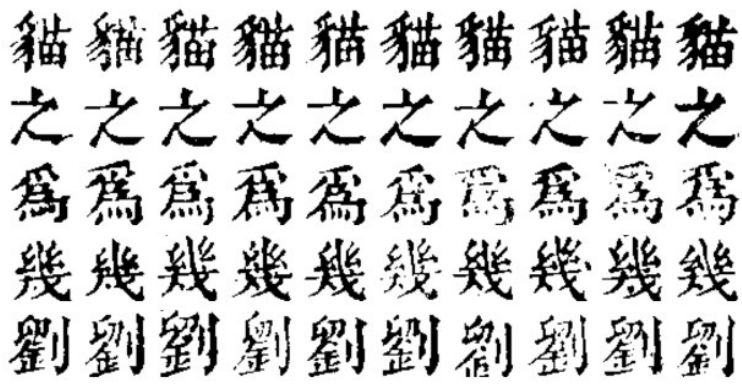 貓貓貓貓貓貓貓貓貓貓
之之之之之之之之之之
爲爲爲爲爲爲爲爲爲爲
幾幾幾幾幾幾幾幾幾幾
劉劉劉劉劉劉劉劉劉劉